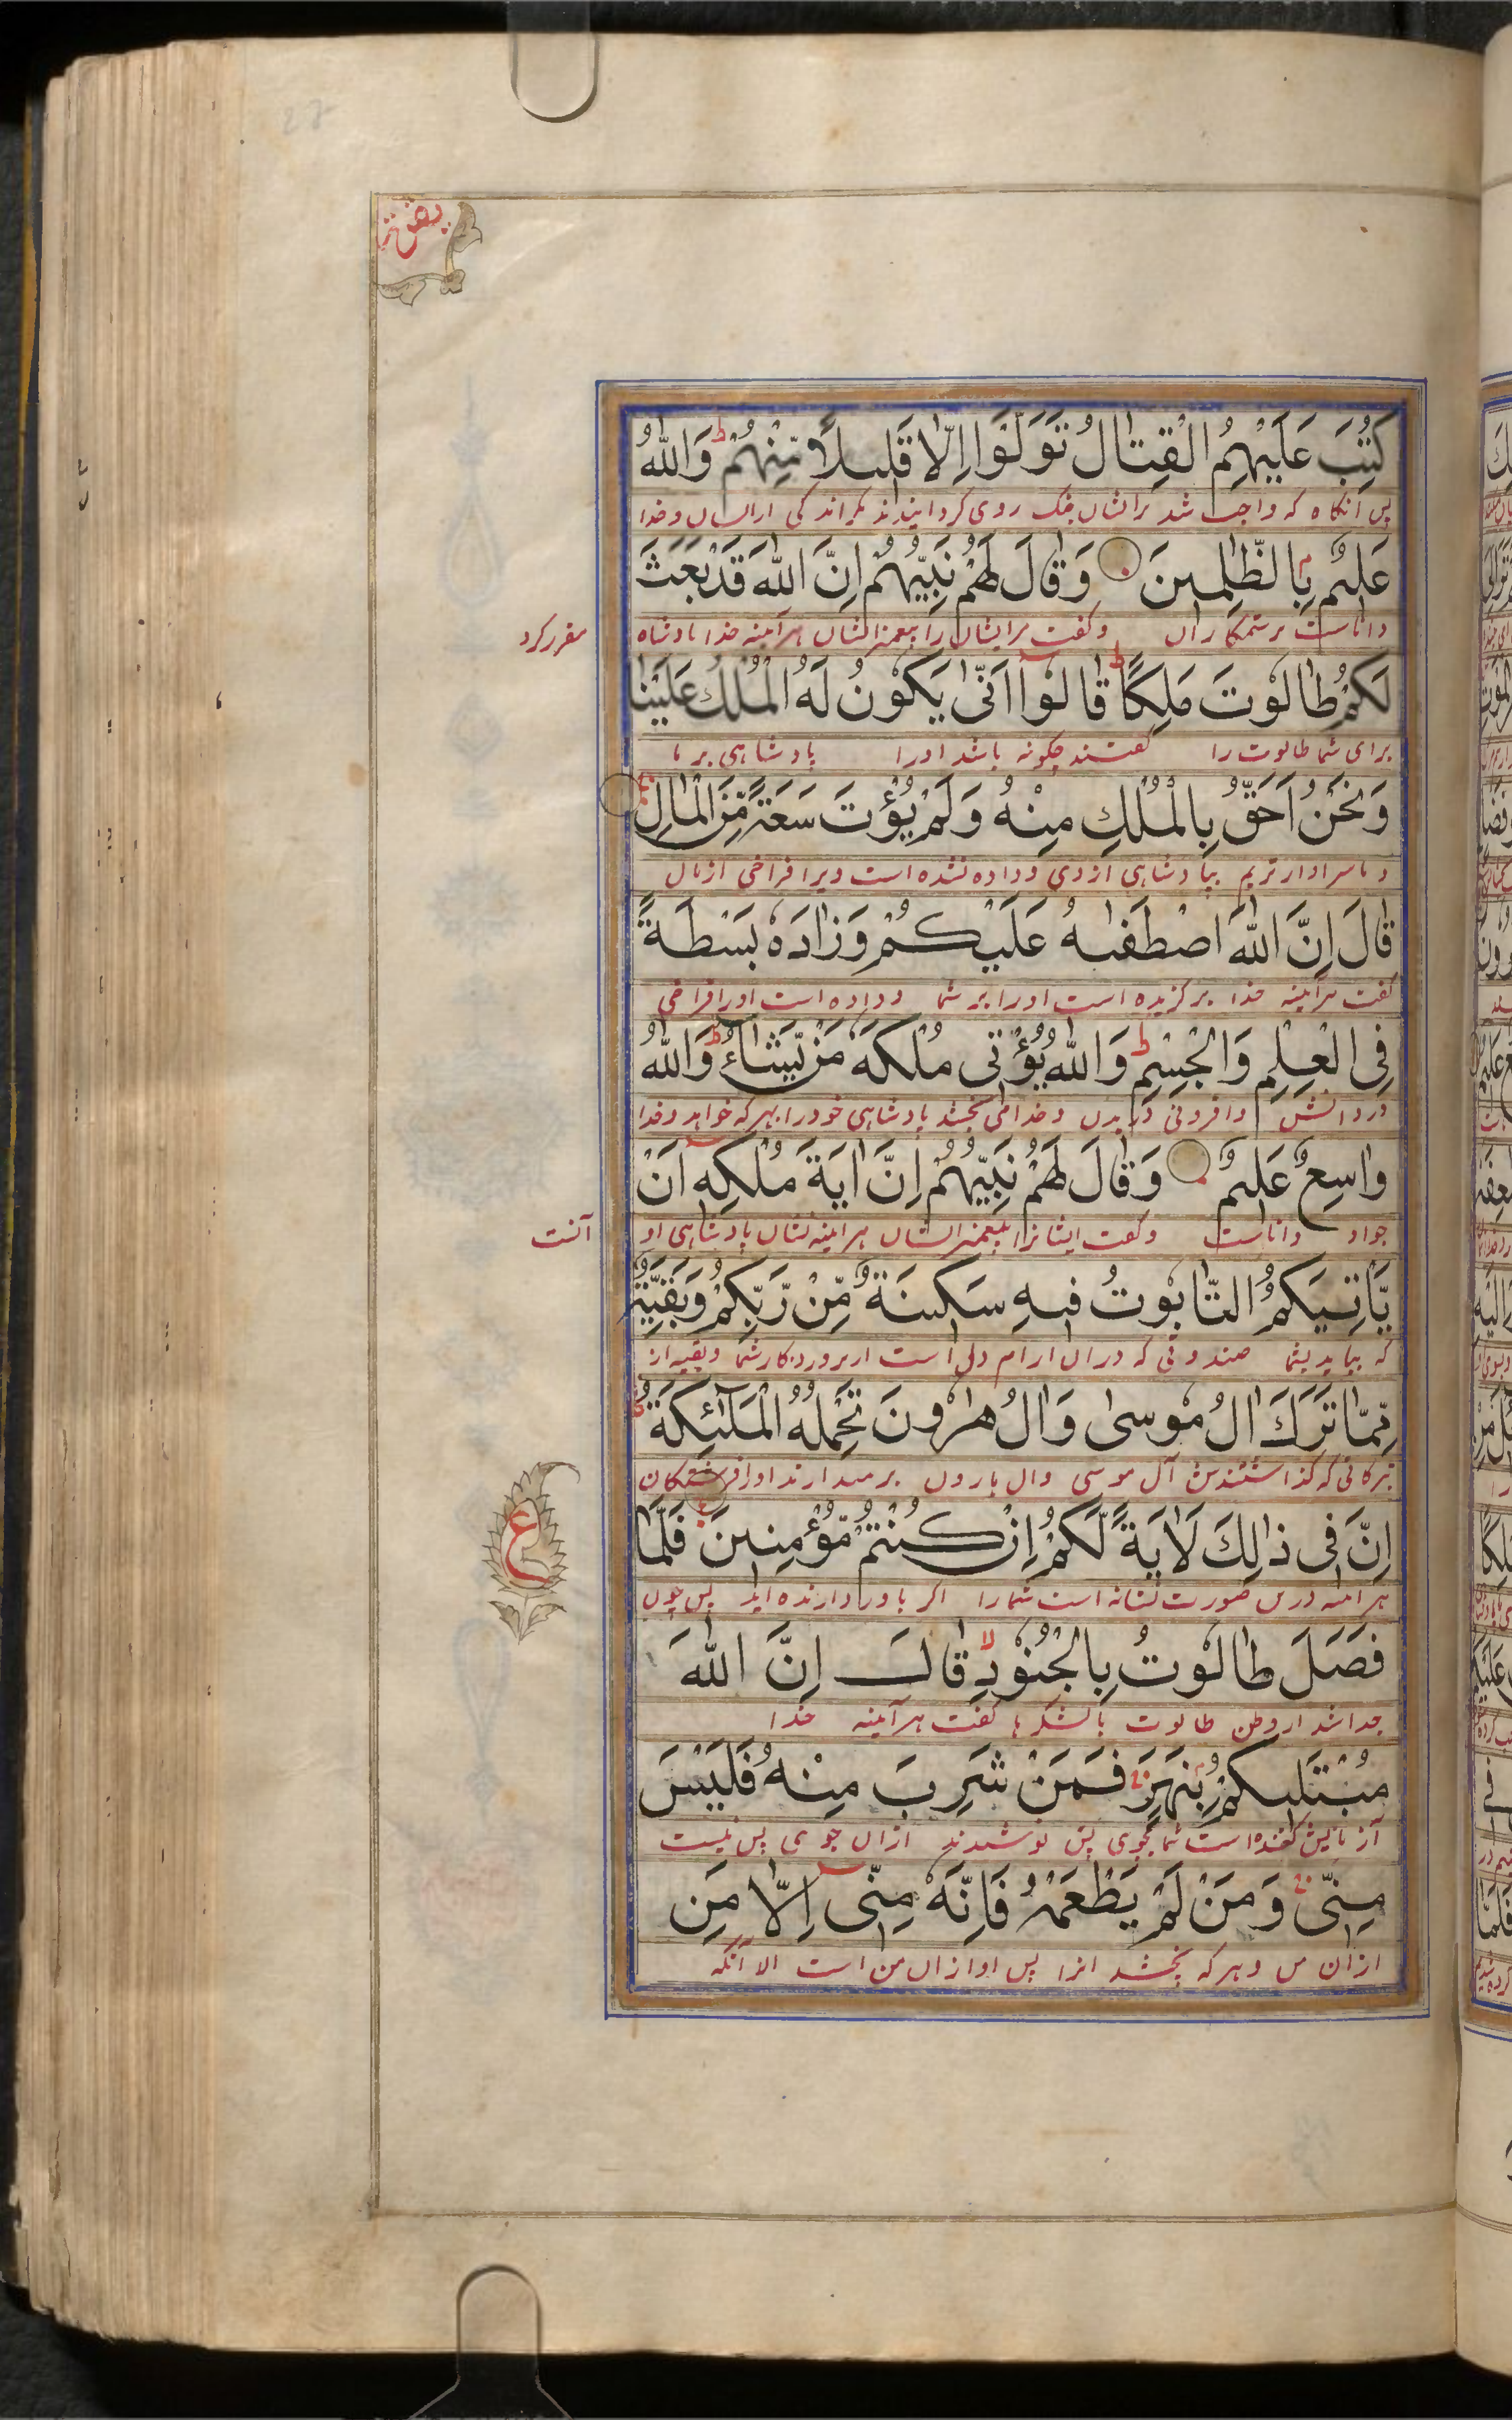 كُتِبَ عَلَيْهِمُ الْقِتَالُ تَوَلَّوْا اِلَّا قَلِيلًا مِّنْهُمْ ط وَاللّٰهُ
پس آنگاه که واجب شد برایشان جنگ روی گردانیدند مگر اندکی از ایشان و خدا
عَلِيمٌ بِالظّٰلِمِينَ وَقَالَ لَهُمْ نَبِيُّهُمْ اِنَّ اللّٰهَ قَدْ بَعَثَ
داناست برستمکاران وگفت مرایشان را پیغمبرایشان هرآینه خدا پادشاه
مقرر کرد
لَكُمْ طَالُوتَ مَلِكًا ط قَالُوا اَنّٰى يَكُونُ لَهُ الْمُلْكُ عَلَيْنَا
برای شما طالوت را گفتند چگونه باشد اورا پادشاهی بر ما
وَنَحْنُ اَحَقُّ بِالْمُلْكِ مِنْهُ وَلَمْ يُؤْتَ سَعَةً مِّنَ الْمَالِ ط
و ما سزاوارتریم بپادشاهی از وی و داده نشده است ویرا فراخی از مال
قَالَ اِنَّ اللّٰهَ اصْطَفٰىهُ عَلَيْكُمْ وَزَادَهُ بَسْطَةً
گفت هرآینه خدا برگزیده است اورا بر شما و داده است اورا فراخی
فِى الْعِلْمِ وَالْجِسْمِ ط وَاللّٰهُ يُؤْتِى مُلْكَهُ مَنْ يَّشَاءُ ط وَاللّٰهُ
در دانش و افزونی در بدن و خدا می بخشد پادشاهی خود را بهرکه خواهد و خدا
وَاسِعٌ عَلِيمٌ وَقَالَ لَهُمْ نَبِيُّهُمْ اِنَّ اٰيَةَ مُلْكِهِ اَنْ
جواد داناست وگفت ایشانرا پیغمبرایشان هرآینه نشان پادشاهی او
آنست
يَّاْتِيَكُمُ التَّابُوتُ فِيهِ سَكِينَةٌ مِّنْ رَّبِّكُمْ وَبَقِيَّةٌ
که بیاید بشما صندوقی که دران آرام دل است از پروردگار شما و بقیه از
مِّمَّا تَرَكَ اٰلُ مُوسٰى وَاٰلُ هٰرُونَ تَحْمِلُهُ الْمَلٰٓئِكَةُ ط
که گذاشتندش آل موسی وال هارون برمیدارند اورا فرشتگان
اِنَّ فِى ذٰلِكَ لَاٰيَةً لَّكُمْ اِنْ كُنْتُمْ مُّؤْمِنِينَ فَلَمَّا
هرآینه درین صورت نشانه است شما را اگر باور دارنده اید پس چون
ع
فَصَلَ طَالُوتُ بِالْجُنُودِ لا قَالَ اِنَّ اللّٰهَ
جدا شد از وطن طالوت بالشکرها گفت هرآینه خدا
مُبْتَلِيكُمْ بِنَهَرٍ فَمَنْ شَرِبَ مِنْهُ فَلَيْسَ
آزمایش کننده است شما بجوی پس نوشیدند ازان جوی پس نیست
مِنِّى وَمَنْ لَمْ يَطْعَمْهُ فَاِنَّهُ مِنِّى اِلَّا مَنِ
ازان من و هرکه نچشد انرا پس او ازان من است الا آنکه